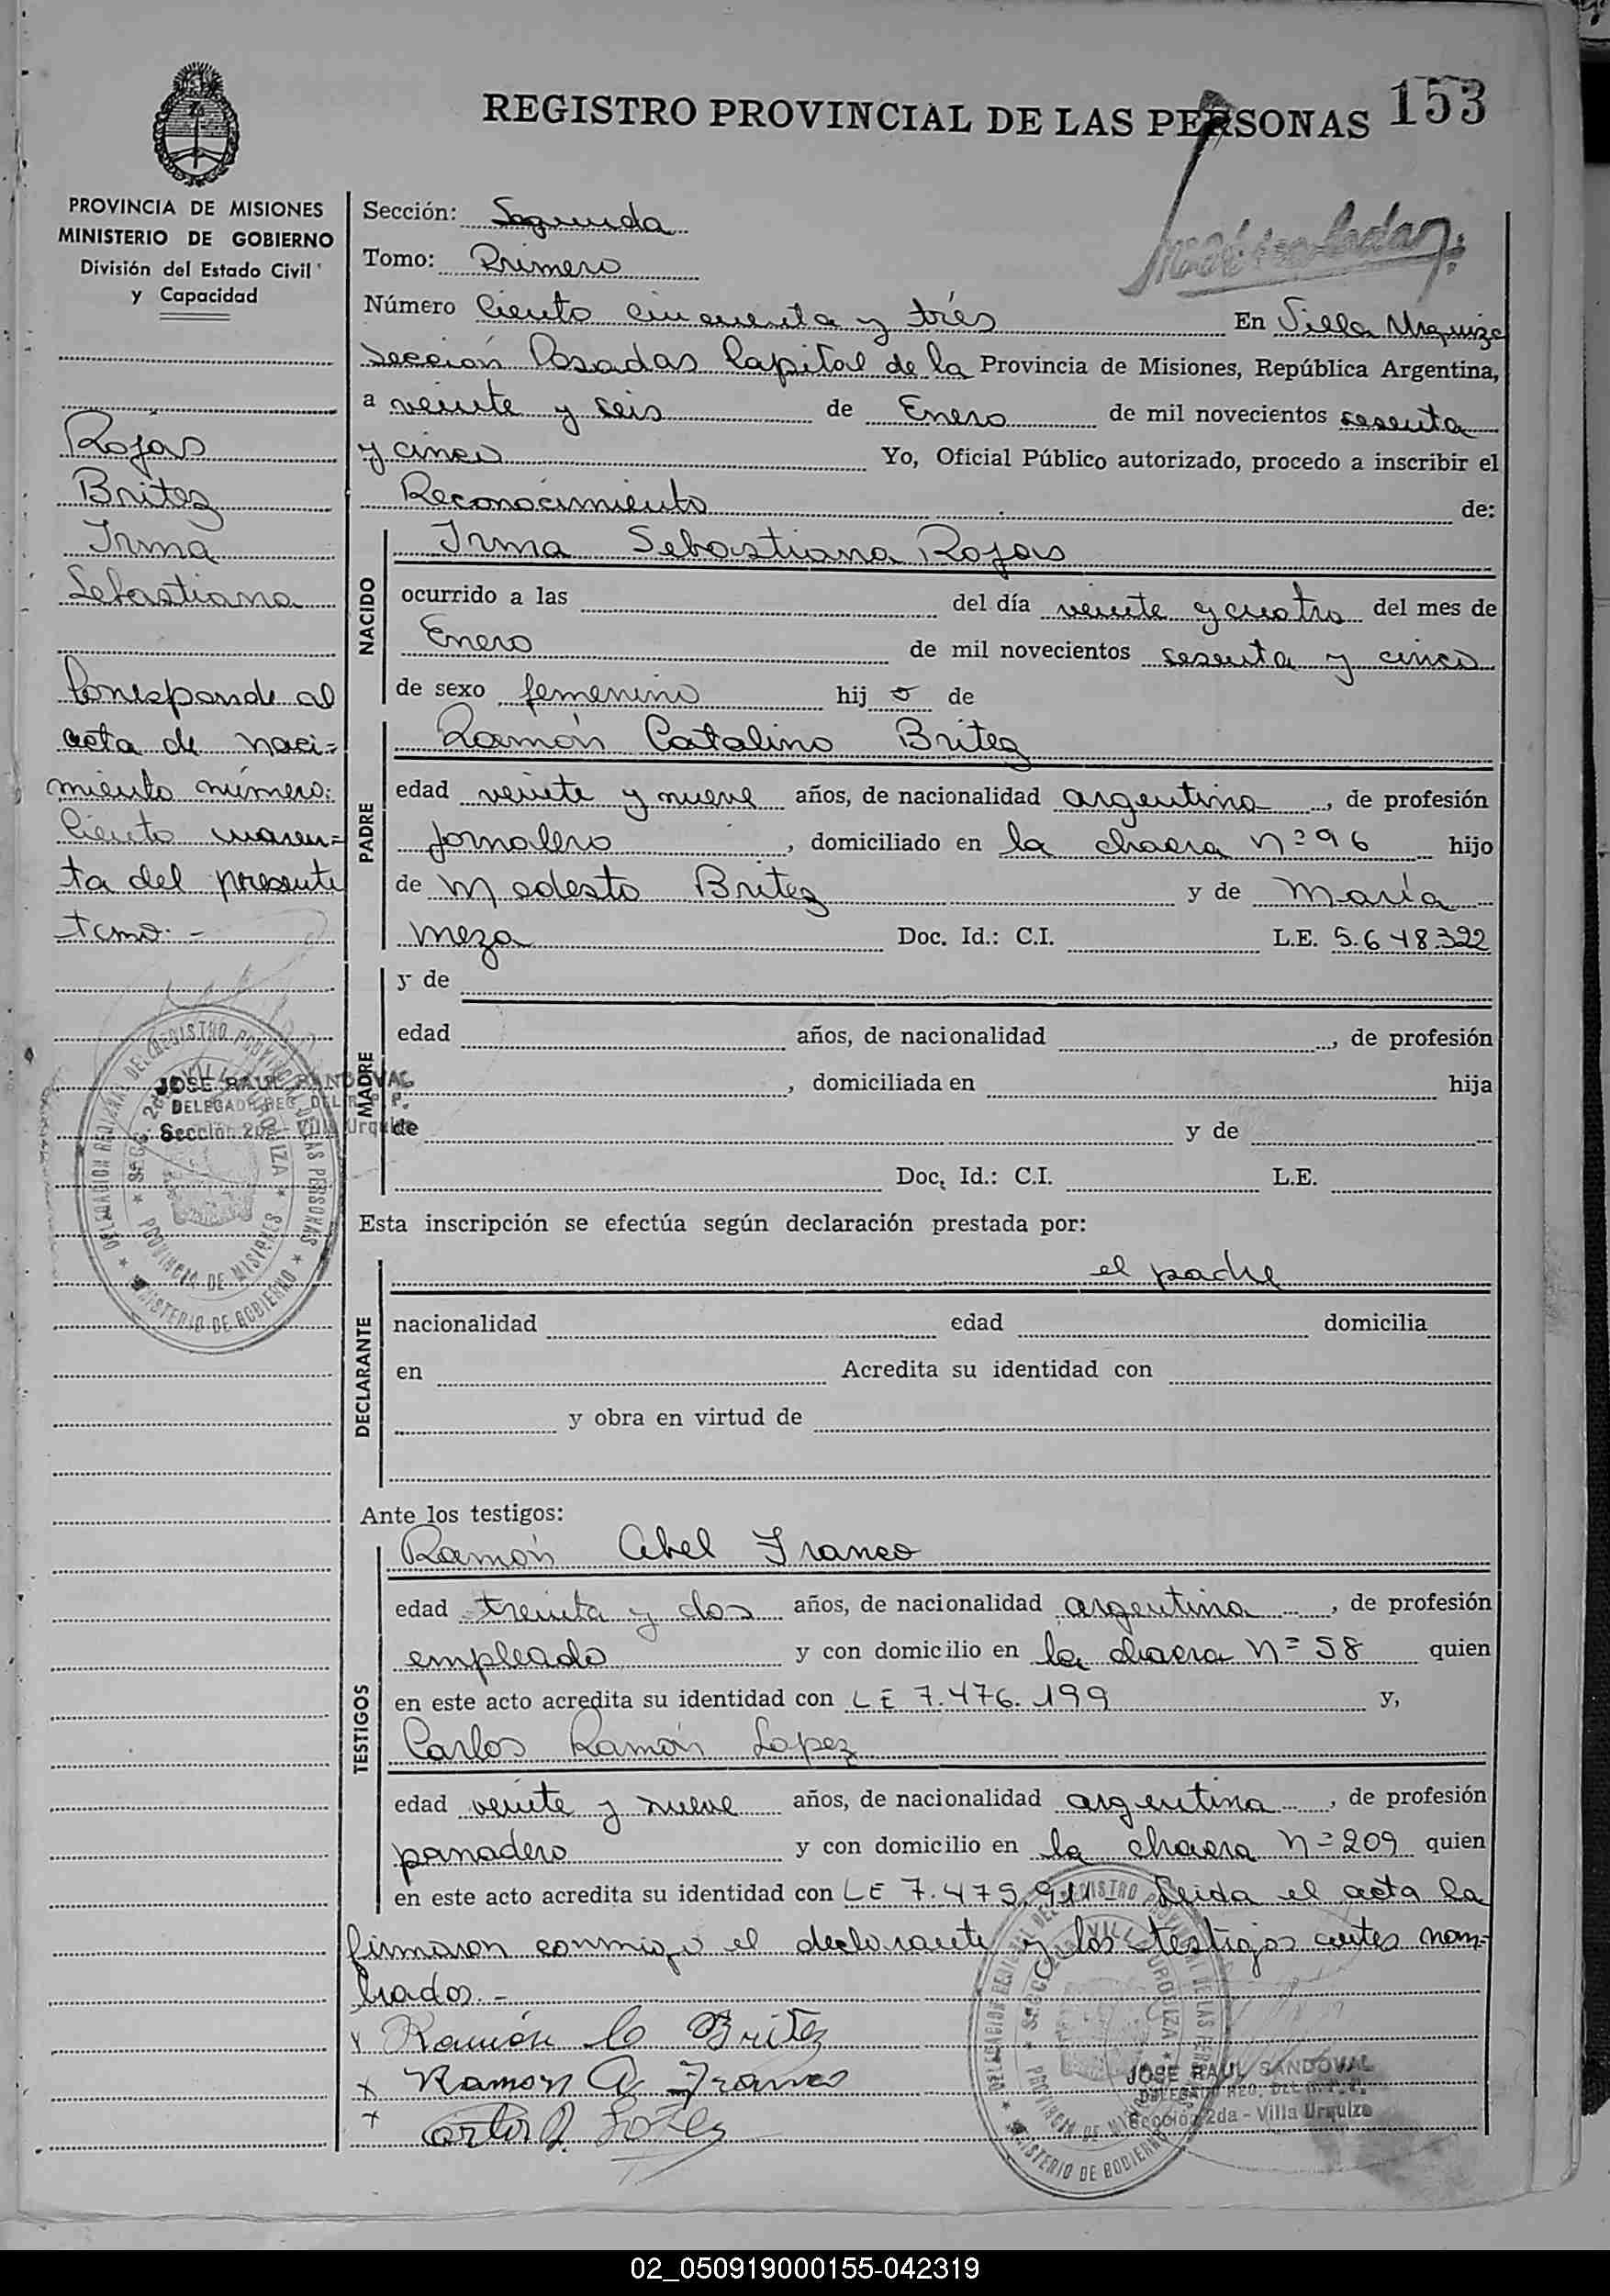 REGISTRO PROVINCIAL DE LAS PERSONAS 153
PROVINCIA DE MISIONES
MINISTERIO DE GOBIERNO
División del Estado Civil
y Capacidad
Rojas
Britez
Irma
Sebastiana
Corresponde al
acta de naci=
miento número:
Ciento cuaren=
ta del presente
tomo.-
JOSE RAUL SANDOVAL
DELEGADO REG. DEL R. P. P.
Sección 2da - Villa Urquiza
DELEGACION REGIONAL DEL REGISTRO PROVINCIAL DE LAS PERSONAS
SECC. 2da VILLA URQUIZA
PROVINCIA DE MISIONES
MINISTERIO DE GOBIERNO
Sección: Segunda
Tomo: Primero
Número Ciento cincuenta y trés En Villa Urquiza
Sección Posadas Capital de la Provincia de Misiones, República Argentina,
a veinte y seis de Enero de mil novecientos sesenta
y cinco Yo, Oficial Público autorizado, procedo a inscribir el
Reconocimiento de:
NACIDO
Irma Sebastiana Rojas
ocurrido a las del día veinte y cuatro del mes de
Enero de mil novecientos sesenta y cinco
de sexo femenino hij o de
PADRE
Ramón Catalino Britez
edad veinte y nueve años, de nacionalidad argentina, de profesión
jornalero, domiciliado en la chacra nº 96 hijo
de Modesto Britez y de María
Meza Doc. Id.: C.I. L.E. 5.648.322
MADRE
y de
edad años, de nacionalidad , de profesión
, domiciliada en hija
de y de
Doc. Id.: C.I. L.E.
Esta inscripción se efectúa según declaración prestada por:
DECLARANTE
el padre
nacionalidad edad domicilia
en Acredita su identidad con
y obra en virtud de
Ante los testigos:
TESTIGOS
Ramón Abel Franco
edad treinta y dos años, de nacionalidad argentina, de profesión
empleado y con domicilio en la chacra Nº 58 quien
en este acto acredita su identidad con LE 7.476.199 y,
Carlos Ramón Lopez
edad veinte y nueve años, de nacionalidad argentina, de profesión
panadero y con domicilio en la chacra nº 209 quien
en este acto acredita su identidad con LE 7.479.911- Leida el acta la
firmaron conmigo el declarante y los testigos antes nom-
brados.-
x Ramón C Britez
x Ramon A Franco
x Carlos R. Lopez
JOSE RAUL SANDOVAL
DELEGADO REG. DEL R. P. P.
Sección 2da - Villa Urquiza
02_050919000155-042319